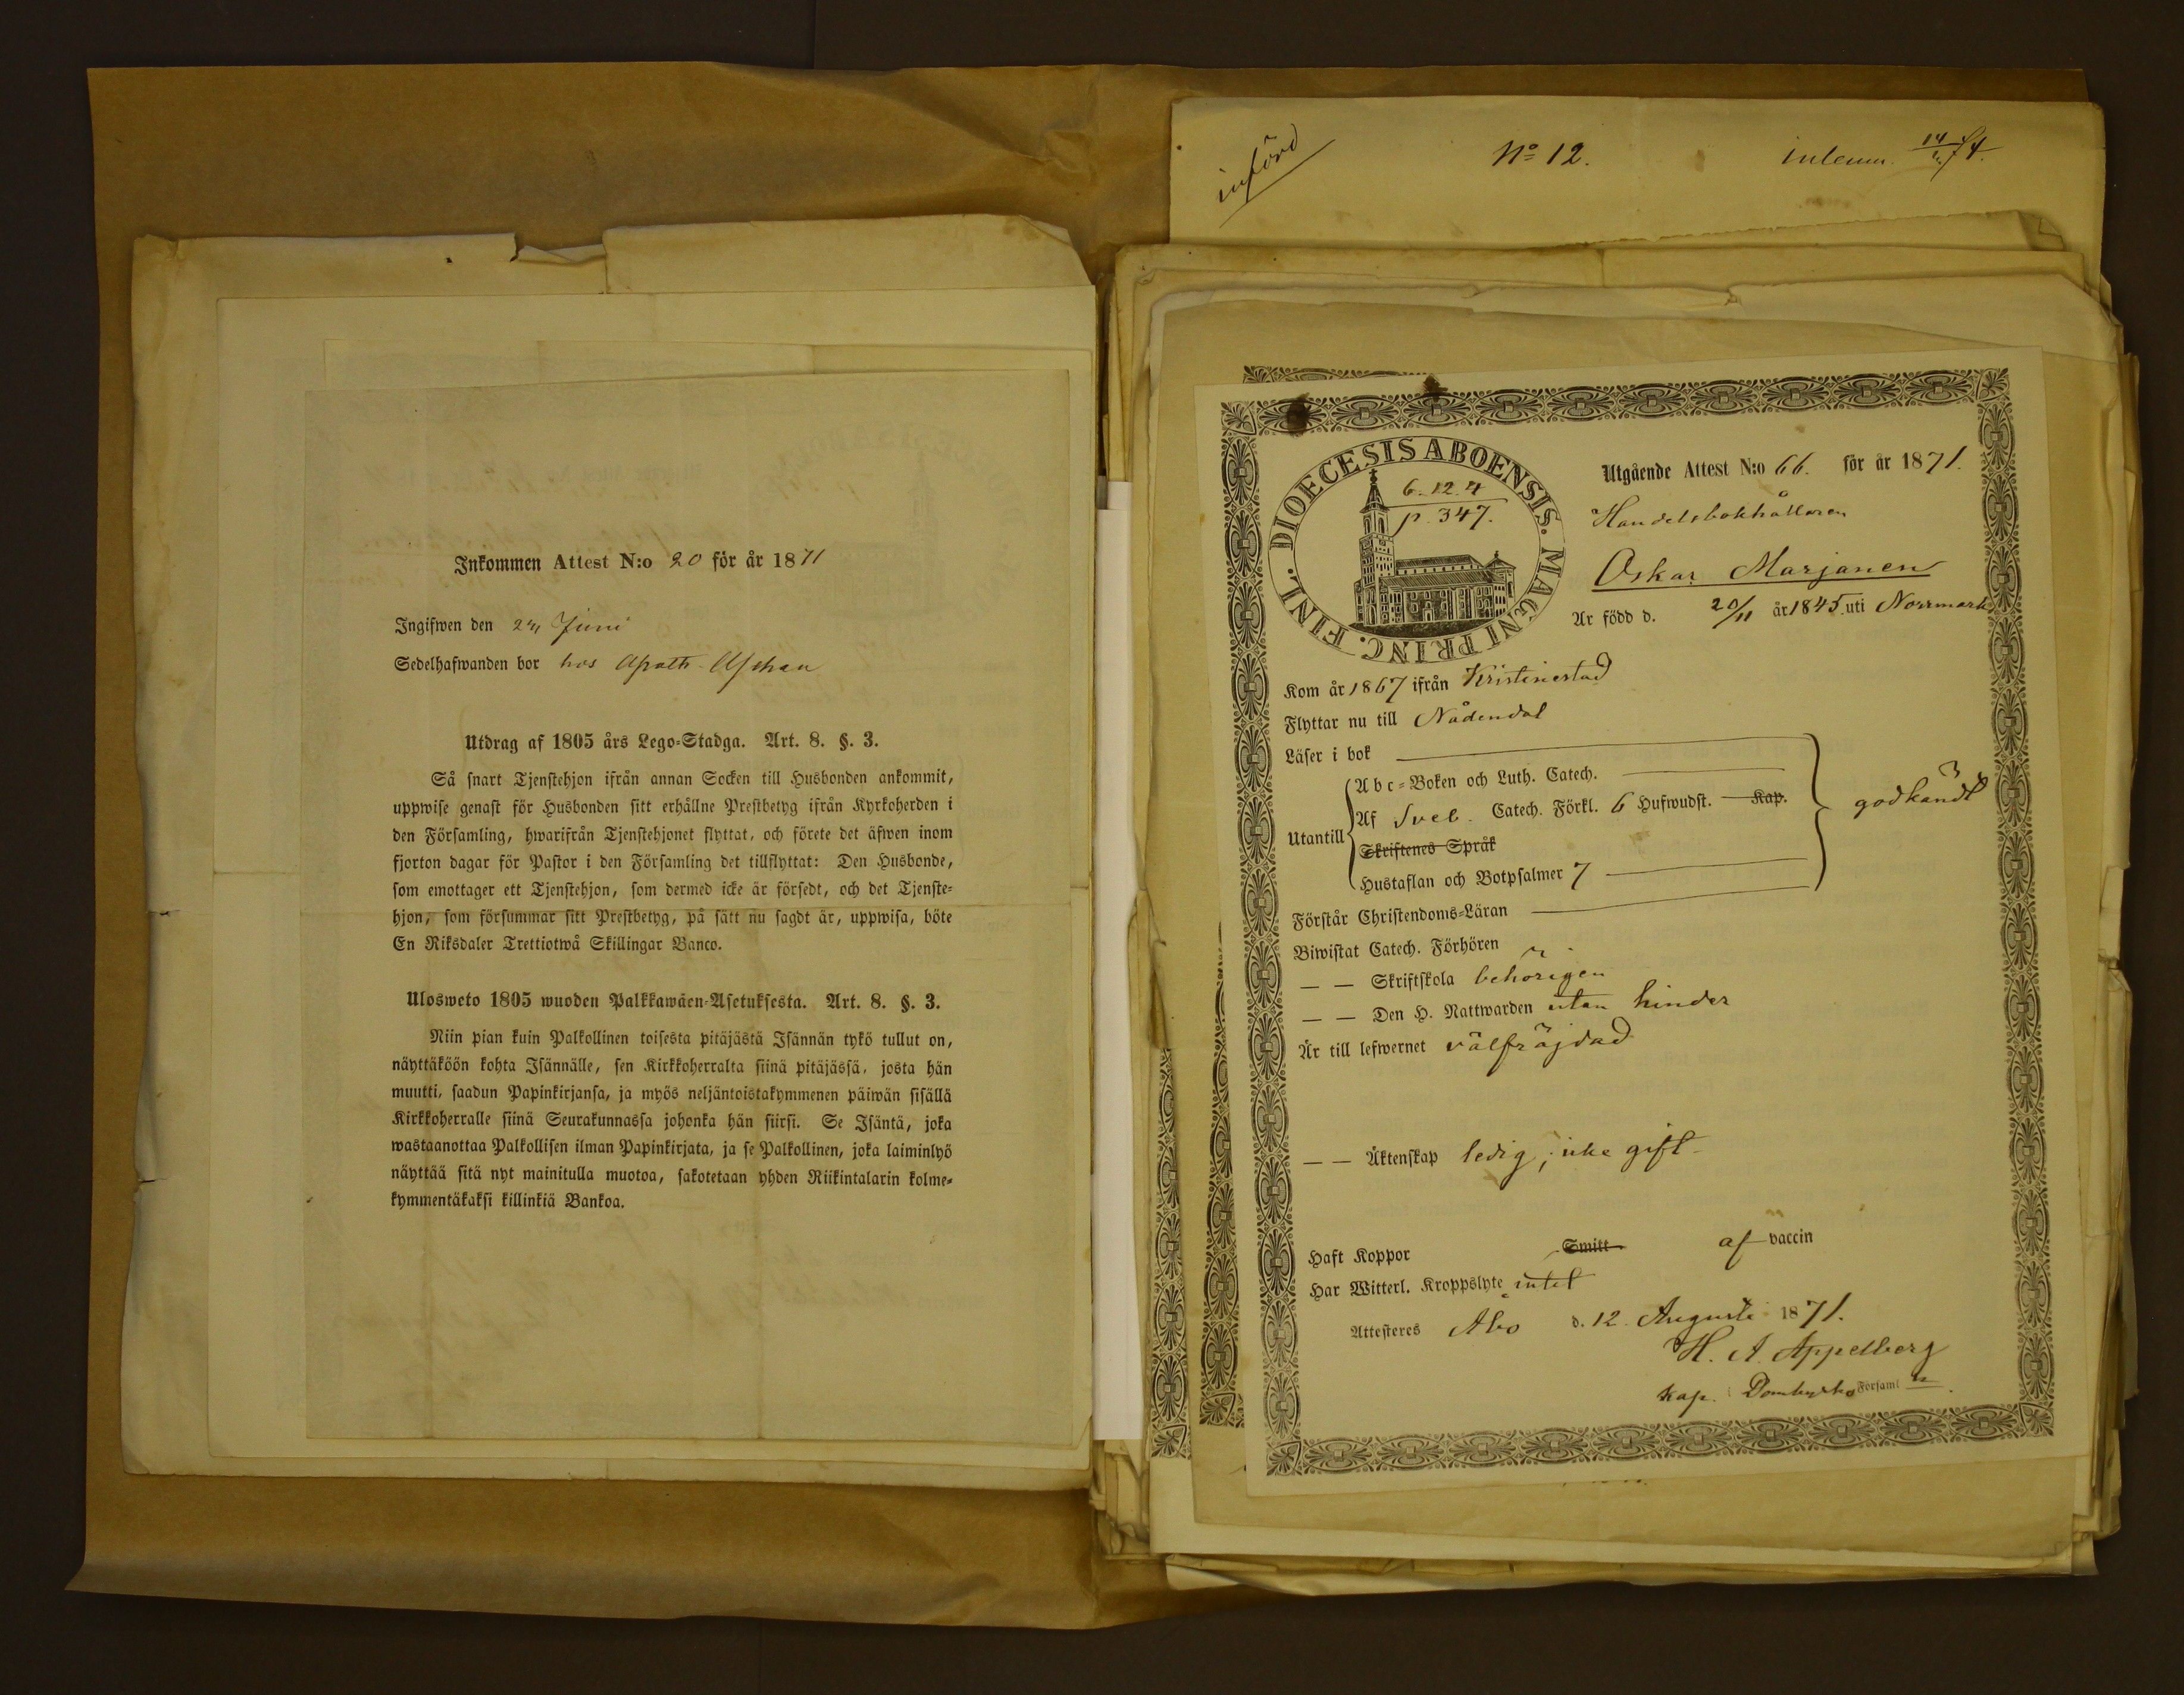 Inkommen Attest N:o 20 för år 1871
Ingifwen den 24 Juni
Sedelhafwanden bor hos Apoth. Aschan
Utdrag af 1805 års Lego-Stadga. Art. 8. §. 3.
Så snart Tjenstehjon ifrån annan Socken till Husbonden ankommit,
uppwise genast för Husbonden sitt erhållne Prestbetyg ifrån Kyrkoherden i
den Församling, hwarifrån Tjenstehjonet flyttat, och förete det äfwen inom
fjorton dagar för Pastor i den Församling det tillflyttat: Den Husbonde,
som emottager ett Tjenstehjon, som dermed icke är försedt, och det Tjenste-
hjon, som försummar sitt Prestbetyg, på sätt nu sagdt är, uppwisa, böte
En Riksdaler Trettiotwå Skillingar Banco.
Ulosweto 1805 wuoden Palkkawäen-Asetuksesta. Art. 8. §. 3.
Niin pian kuin Palkollinen toisesta pitäjästä Isännän tykö tullut on,
näyttäköön kohta Isännälle, sen Kirkkoherralta siinä pitäjässä, josta hän
muutti, saadun Papinkirjansa, ja myös neljäntoistakymmenen päiwän sisällä
Kirkkoherralle siinä Seurakunnassa johonka hän siirsi. Se Isäntä, joka
wastaanottaa Palkollisen ilman Papinkirjata, ja se Palkollinen, joka laiminlyö
näyttää sitä nyt mainitulla muotoa, sakotetaan yhden Riikintalarin kolme-
kymmentäkaksi killinkiä Bankoa.
införd
No 12.
inkom. 14/74.
DIOECESIS ABOENSIS. MAGNI PRINC. FINL.
6.12.4
p. 347.
Utgående Attest N:o 66. för år 1871.
Handelsbokhållaren
Oskar Marjanen
Är född d. 20/11 år 1845. uti Norrmark
Kom år 1867 ifrån Kristinestad
Flyttar nu till Nådendal
Läser i bok
Utantill
Abc-Boken och Luth. Catech.
Af Sveb. Catech. Förkl. 6 Hufwudst. Kap.
Skriftenes Språk
Hustaflan och Botpsalmer 7
godkändt
Förstår Christendoms-Läran
Biwistat Catech. Förhören
— — Skriftskola behörigen
— — Den H. Nattwarden utan hinder
Är till lefwernet välfräjdad
— — Äktenskap ledig, icke gift
Haft Koppor Smitt af vaccin
Har Witterl. Kroppslyte intet
Attesteres Åbo d. 12 Augusti 1871.
H. A. Appelberg
Kap. i Domkyrko Församl n.